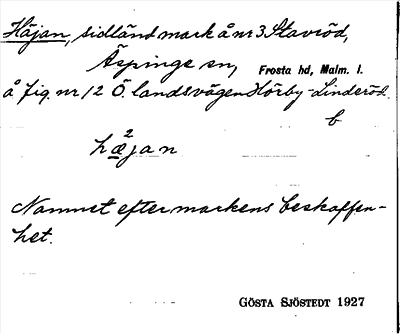 Häjan, sidländ mark å nr 3 Stavröd,
Äspinge sn, Frosta hd, Malm. l.
å fig. nr 12 Ö. landsvägen Hörby-Linderöd.
b
2
hæjan
Namnet efter markens beskaffen-
het.
GÖSTA SJÖSTEDT 1927